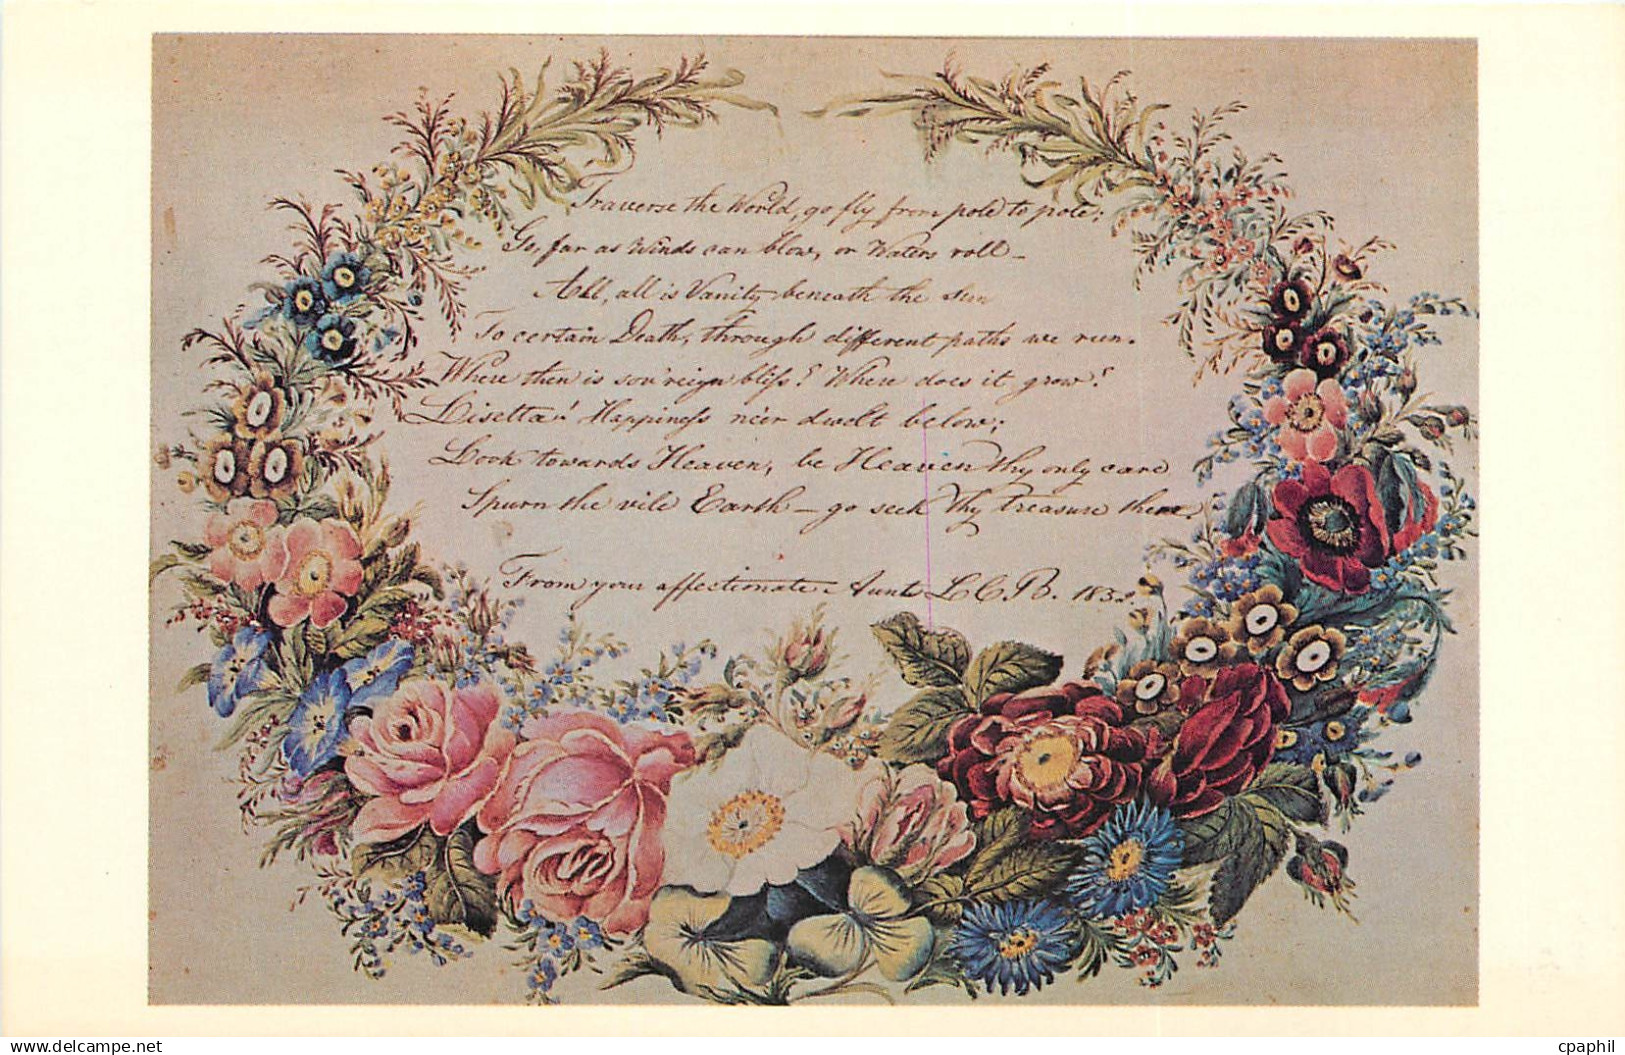 Traverse the World, go fly from pole to pole;
Go, far as Winds can blow, or Waters roll –
All, all is Vanity beneath the sun
To certain Death, through different paths we run.
Where then is sov'reign bliſs? Where does it grow?
Lisetta! Happineſs ne'er dwelt below;
Look towards Heaven, be Heaven thy only care
Spurn the vile Earth – go seek thy treasure there.
From your affectionate Aunt L C B. 1832.
delcampe.net
cpaphil